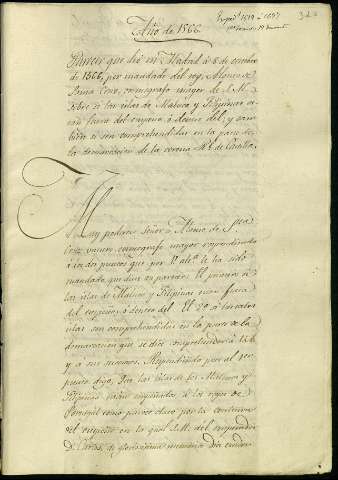 Año de 1566
Parecer que dió en Madrid á 8 de octubre
de 1566, por mandado del rey, Alonso de
Santa Cruz, cosmografo mayor de S. M.
sobre si las islas de Maluco y Filipinas es-
tan fuera del empeño ó dentro del: y tam-
bien si son comprehendidas en la parte de
la demarcacion de la corona R.l de Castilla.
Muy poderoso Señor = Alonso de S.ta
Cruz vuestro cosmografo mayor respondiendo
á los dos puntos que por V. alt.a le ha sido
mandado que diese su parecer. El primero si
las islas de Maluco y Filipinas son fuera
del empeño, ó dentro de él. El 2º si las tales
islas son comprehendidas en la parte de la
demarcacion que se dice comprehenderia á S. M.
y á sus sucesores. Respondiendo pues al pri-
mero digo, Que las islas de los Malucos y
Filipinas estan empeñadas á los reyes de
Portugal como parece claro por la escritura
del empeño en la qual S. M. del emperador
D. Carlos, de gloriosisima memoria dió